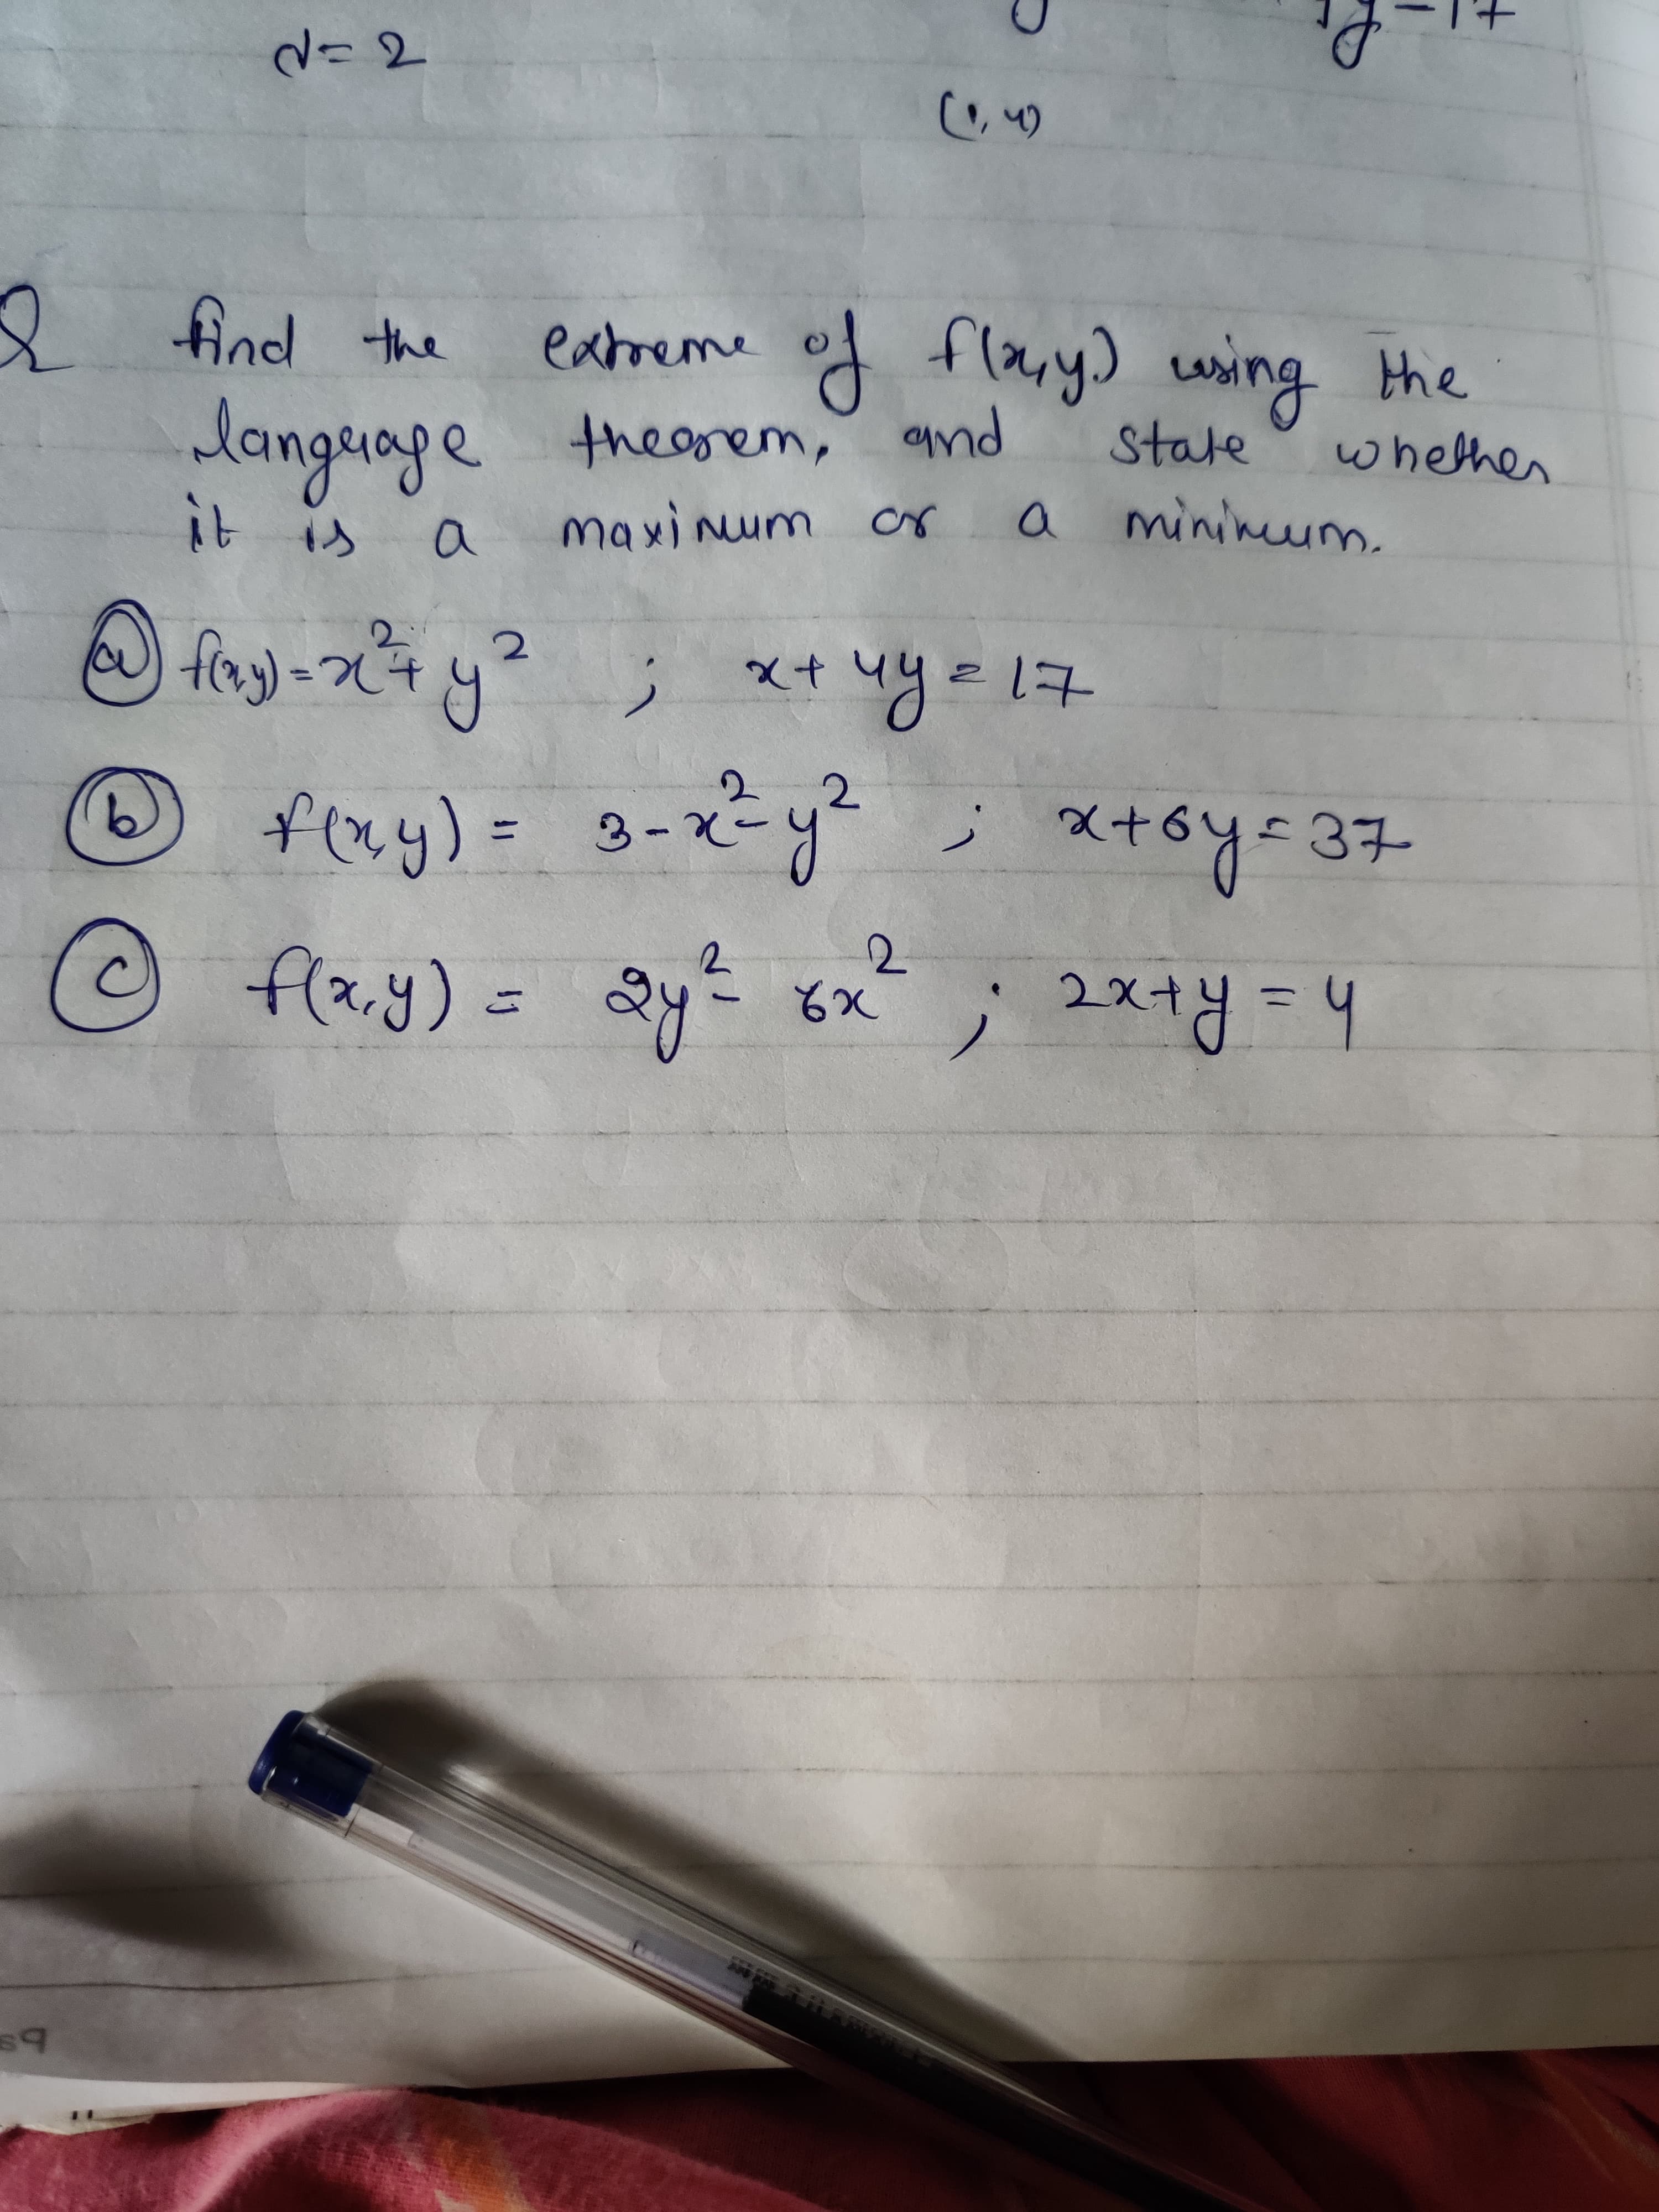 λ = 2
y - 17
(1, 4)
Q find the extreme of f(x,y) using the
language theorem, and state whether
it is a maximum or a minimum.
(a) f(x,y) = x² + y² ; x + 4y = 17
(b) f(x,y) = 3 - x² - y² ; x + 6y = 37
(c) f(x,y) = 2y² - 6x² ; 2x + y = 4
Pa